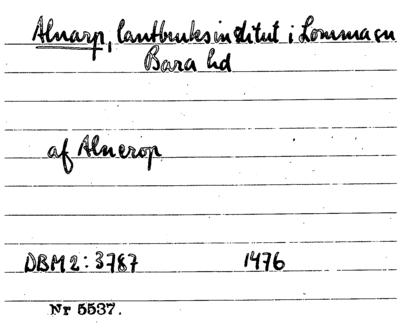 Alnarp, lantbruksinstitut i Lomma sn
Bara hd
af Alnerop
DBM 2:3787 1476
Nr 5537.